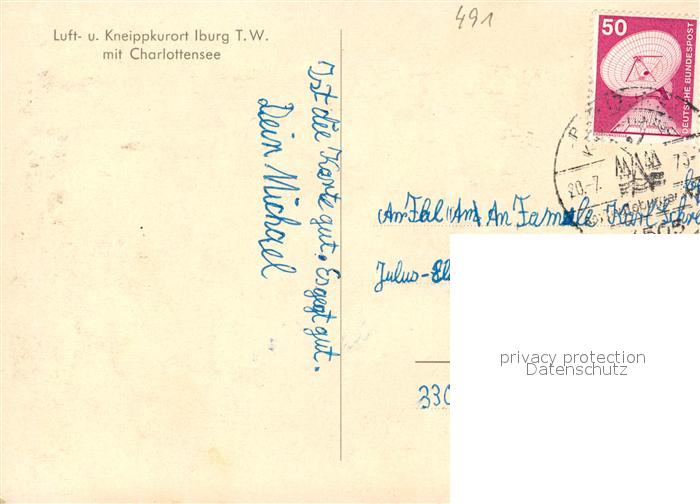 Luft- u. Kneippkurort Iburg T.W.
mit Charlottensee
491
50
DEUTSCHE BUNDESPOST
20.-7.
Ist die Karte gut. Es gegt gut.
Dein Michael
An Famele Karl Schre
Julus-
330
privacy protection
Datenschutz